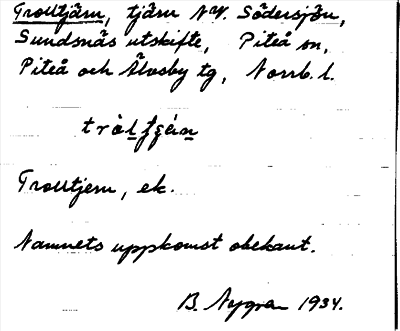 Trolltjärn, tjärn NV. Södersjön,
Sundsnäs utskifte, Piteå sn,
Piteå och Älvsby tg, Norrb. l.
Trolltjern, ek.
Namnets uppkomst obekant.
B. Nygren 1934.